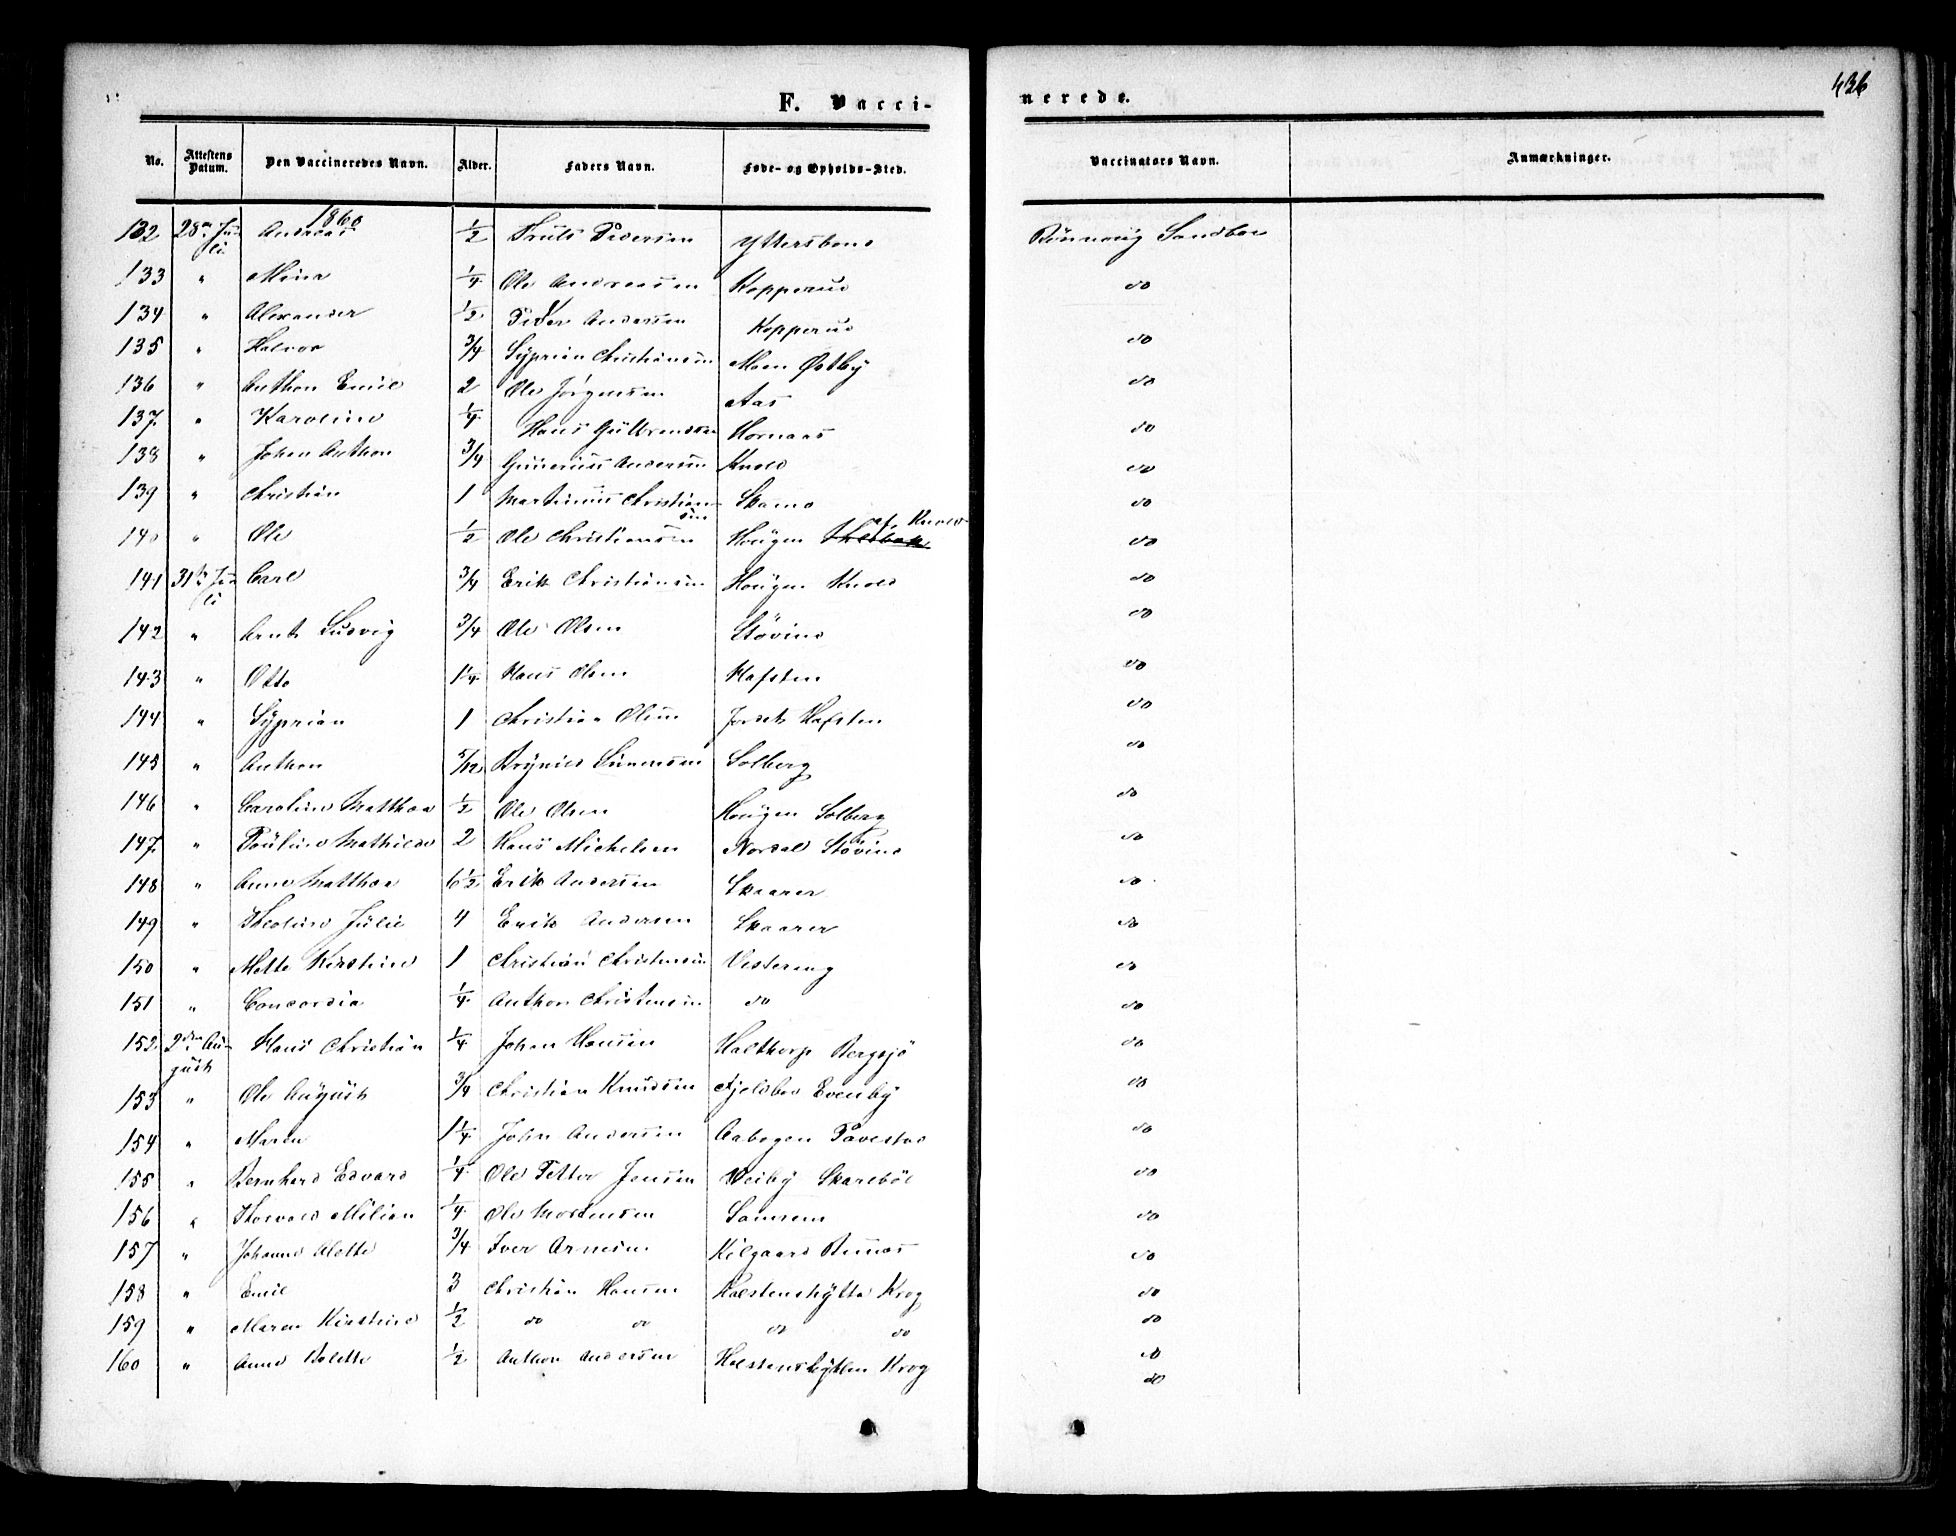 F. Vacci-
nerede.
436
No. Attestens Datum. Den Vaccineredes Navn. Alder. Faders Navn. Føde- og Opholds-Sted. Vaccinators Navn. Anmærkninger.
1860
132 28de Juli Andreas 1/2 Truls Pedersen Rönnoüg Sandboe
133 " 1/4 Ole Andreassen Kopperud do
134 " Alexander 1/2 Peder Anderssen Kopperud do
135 " Halvor 3/4 Syprian Christiansen Moen Østby do
136 " Anthon Emil 2 Ole Jörgensen Aas do
137. " Karoline 1/4 Hans Gülbrandsen Hornaas do
138 " Johan Anthon 3/4 Gunerius Andersen Knold do
139 " Christian 1 Martinus Christiansen do
140 " Ole 1/2 Ole Christiansen Hougen af Knold do
141 31te Juli Carl 3/4 Erik Christiansen Hougen Knold do
142 " Arnt Ludvig 3/4 Ole Olsen Stövind do
143 " Otto 1 1/4 Hans Olsen Hafsten do
144 " Syprian 1 Christian Olsen Hafsten do
145 " Anthon 5/12 Brynild Simensen Solberg do
146 " Caroline Matthea 1/2 Ole Olsen Hougen Solberg do
147. " Pauline Mathilde 2 Hans Michelsen Nordal Stövind do
148 " Anne Matthea 6 1/2 Erik Andersen Skaarer do
149 " Theoline Julie 4 Erik Andersen Skaarer do
150 " Mette Kirstine 1 Christian Christensen Vestereng do
151 " Concordia 1/4 Anthon Christensen do do
152. 2den August Hans Christian 1/4 Johan Hansen Halthorp Bergsjö do
153 " Ole August 3/4 Christian Knudsen Fjeldbo Evenby do
154 " Maren 1 1/4 John Andersen Aabogen Pavestad do
155 " Bernhard Edvard 1/4 Ole Petter Jensen Veiby Skareböl do
156 " Thorvald Milian 1/4 Ole Mortensen do
157 " Johanne Alette 3/4 Iver Arnesen do
158 " Emil 3 Christian Hansen Halstenshytte Krog do
159 " Maren Kirstine 1/2 do do do do do
160 " Anne Bolette 1/2 Anthon Andersen Halstenshytten Krog do
do